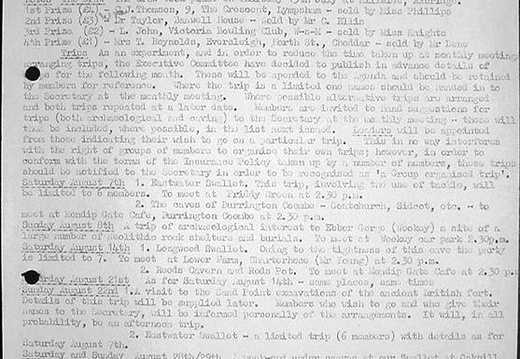 1st Prize (£5) - J. Thomson, 9, The Crescent, Lympsham - sold by Miss Phillips
2nd Prize (£3) Dr Taylor, Banwell House - Sold by Mr C. Ellis
3rd Prize (£2) - L. John, Victoria Bowling Club, W-s-M - sold by Miss Knights
4th Prize (£1) - Mrs T. Reynolds, Eversleigh, North St, Cheddar - sold by Mr Dans
Trips As an experiment, and in order to reduce the time taken up at monthly meetings
arranging trips, the Executive Committee have decided to publish in advance details of
for the following month. These will be appended to the Agenda and should be retained
by members for reference. Where the trip is a limited one names should be handed in to
the Secretary at the monthly meeting. Where possible alternative trips are arranged
and both trips repeated at a later date. Members are invited to hand suggestions for
trips (both archaeological and caving) to the Secretary at the monthly meeting - these will
then be included, where possible, in the list next issued. Leaders will be appointed
from those indicating their wish to go on a particular trip. This in no way interferes
with the right of groups of members to organise their own trips; however, in order to
conform with the terms of the Insurance Policy taken up by a number of members, these trips
should be notified to the Secretary in order to be recognised as 'a Group organised trip'.
Saturday August 7th 1. Eastwater Swallet. This trip, involving the use of tackle, will
be limited to 6 members. To meet at Priddy Green at 2.30 pm.
2. The caves of Burrington Combe - Goatchurch, Sidcot, etc. - to
meet at Mendip Gate Cafe, Burrington Coombe at 2.30 p.m.
Sunday August 8th A trip of archaeological interest to Ebbor Gorge (Wookey) a site of a
large number of Neolithic rock shelters and burials. To meet at Wookey car park 2.30p.m.
Saturday August 14th 1. Longwood Swallet. Owing to the tightness of this cave the party
is limited to 7. To meet at Lower Farm, Charterhouse (Mr Young) at 2.30 p.m.
2. Roods Cavern and Rods Pot. To meet at Mendip Gate Cafe at 2.30 p.m
August 21st As for Saturday August 14th - same places, same times
Sunday August 22nd 1. A visit to the Sand Point excavations of the ancient British fort.
Details of this trip will be supplied later. Members who wish to go and who give their
names to the Secretary, will be informed personally of the arrangements. It will, in all
probability, be an afternoon trip.
2. Eastwater Swallet - a limited trip (6 members) with details as for
Saturday August 7th.
Saturday and Sunday August 28th/29th